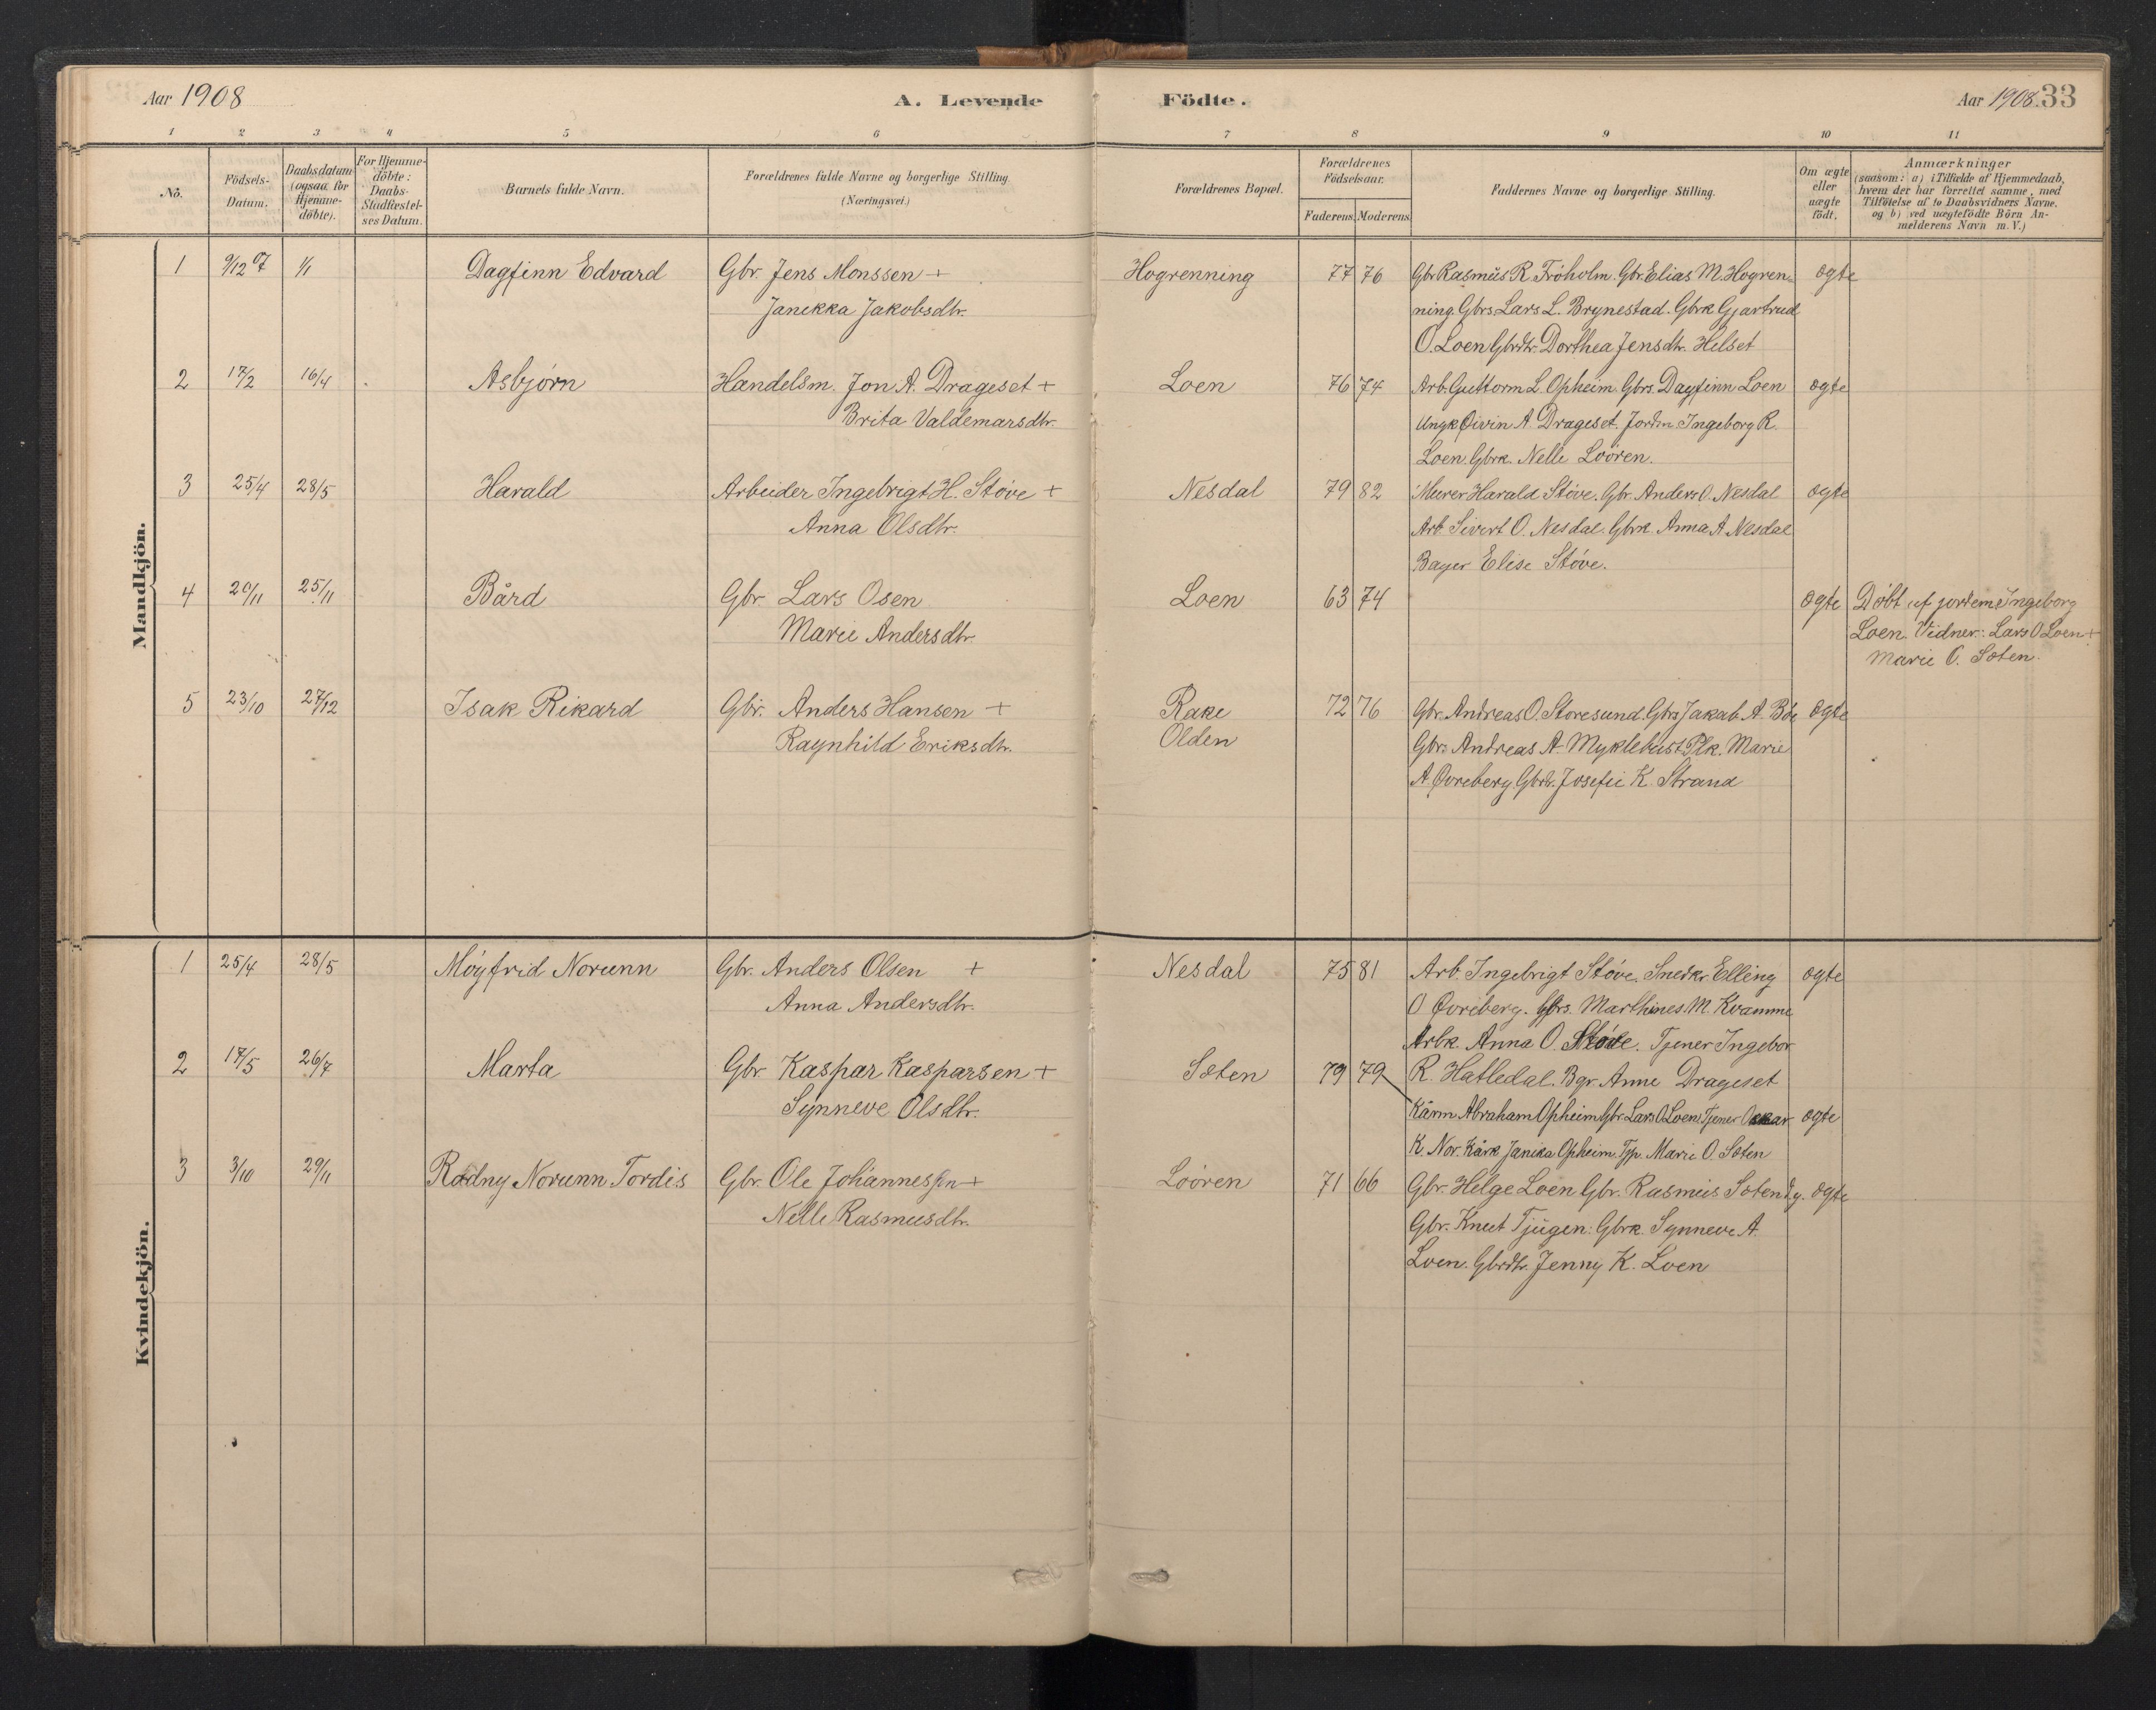 Aar 1908
A. Levende Födte.
Aar 1908. 33
1 2 3 4 5 6 7 8 9 10 11
No.
Födsels-
Datum.
Daabsdatum
(ogsaa for
Hjemme-
döbte).
For Hjemme-
döbte:
Daabs-
Stadfæstel-
ses Datum.
Barnets fulde Navn.
Forældrenes fulde Navne og borgerlige Stilling
(Næringsvei.)
Forældrenes Bopæl.
Forældrenes
Födselsaar.
Faderens. Moderens.
Faddernes Navne og borgerlige Stilling.
Om ægte
eller
uægte
födt.
Anmærkninger
(saasom: a) i Tilfælde af Hjemmedaab,
hvem der har forrettet samme, med
Tilföielse af to Daabsvidners Navne.
og b) ved uægtefödte Börn An-
melderens Navn m. V.)
Mandkjön.
1 9/12 07 1/1 Dagfinn Edvard Gbr. Jens Monssen + Hogrenning 77 76 Gbr Rasmus R. Fröholm. Gbr. Elias M. Hogren- ægte
Janikka Jakobsdtr. ning. Gbrs Lars L. Brynestad. Gbrk Gjartrud
O. Loen Gbrdtr. Dorthea Jensdtr. Helset
2 17/2 16/4 Asbjörn Handelsm. Jon A. Drageset + Loen 76 74 Arb. Guttorm L. Opheim. Gbrs. Dagfinn Loen ægte
Brita Valdemarsdtr. Ungk Öivin A. Drageset. Jordm Ingeborg R.
Loen. Gbrk. Nelle Loören.
3 25/4 28/5 Harald Arbeider Ingebrigt H. Stöve + Nesdal 79 82 Murer Harald Stöve. Gbr. Anders O. Nesdal ægte
Anna Olsdtr. Arb. Sivert O. Nesdal. Gbrk. Anna A. Nesdal
Bager Elise Stöve.
4 20/11 25/11 Bård Gbr. Lars Osen Loen 63 74 ægte Döbt af jordem Ingeborg
Marie Andersdtr. Loen. Vidner: Lars O Loen +
Marie O. Sæten.
5 23/10 27/12 Isak Rikard Gbr. Anders Hansen + Rake 72 76 Gbr. Andreas O. Storesund. Gbrs Jakob A. Böe ægte
Ragnhild Eriksdtr. Olden Gbrs Andreas A. Myklebust. Plk. Marie
A. Övreberg. Gbrdtr. Josefie K. Strand
Kvindekjön.
1 25/4 28/5 Möyfrid Norunn Gbr. Anders Olsen + Nesdal 75 81 Arb. Ingebrigt Stöve. Snedkr Elling ægte
Anna Andersdtr. O Övreberg. Gbrs. Marthines M. Kvamme
Arbk Anna O. Stöve. Tjener Ingebor
2 17/5 26/7 Marta Gbr. Kaspar Kasparsen + Sæten 79 79 R. Hatledal. Bgr. Anne Drageset
Synneve Olsdtr. Kårm Abraham Opheim Gbr. Lars O. Loen Tjener Oskar ægte
K. Nor. Kårk Janika Opheim. Tjp. Marie O. Sæten
3 3/10 29/11 Radny Norunn Tordis Gbr. Ole Johannessen + Loören 71 66 Gbr. Helge Loen Gbr. Rasmus Sæten d.y. ægte
Nelle Rasmusdtr. Gbr. Knut Tjugen. Gbrk. Synneve A.
Loen. Gbrdtr. Jenny K. Loen